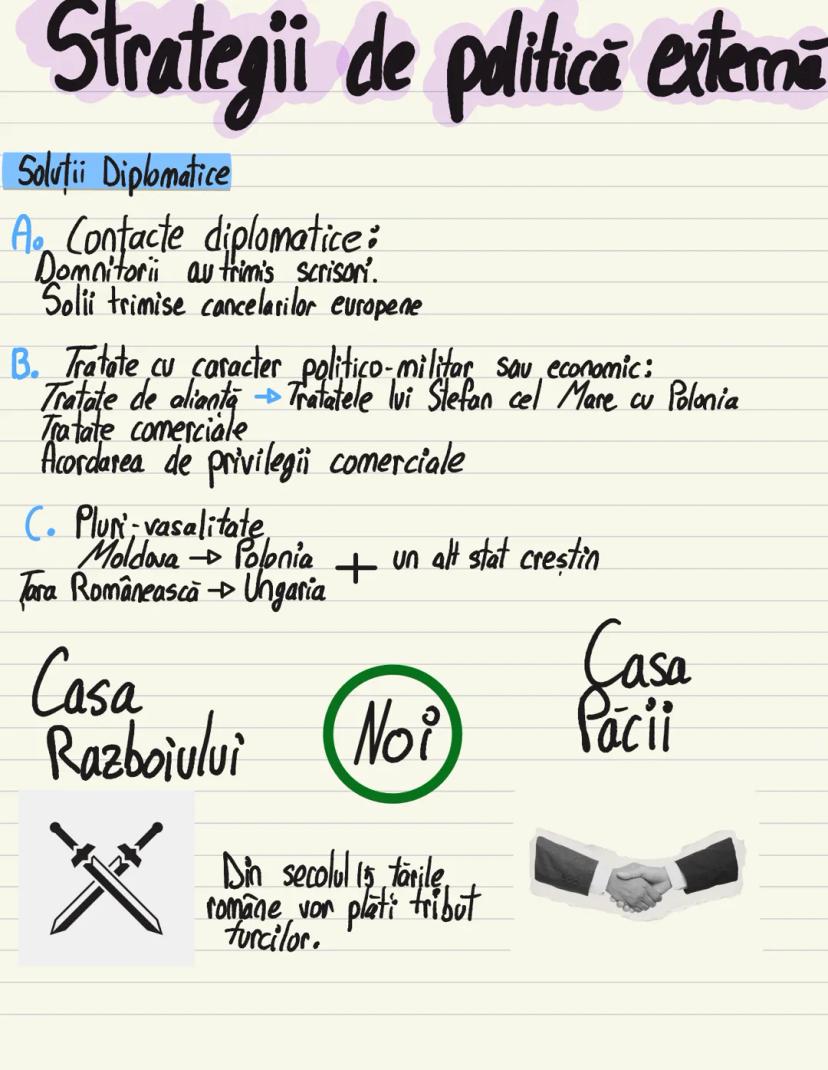 Strategii de politică externă
Soluții Diplomatice
A. Contacte diplomatice:
Domnitorii au trimis scrisori.
Solii trimise cancelarilor europene
B. Tratate cu caracter politico-militar sau economic:
Tratate de aliantă → Tratatele lui Stefan cel Mare cu Polonia
Tratate comerciale
Acordarea de privilegii comerciale
C. Pluri-vasalitate
Moldova → Polonia + un alt stat creștin
Țara Românească → Ungaria
Casa
Razboiului
Noi
Casa
Păcii
Din secolul 15 tările
române vor plăti tribut
turcilor.